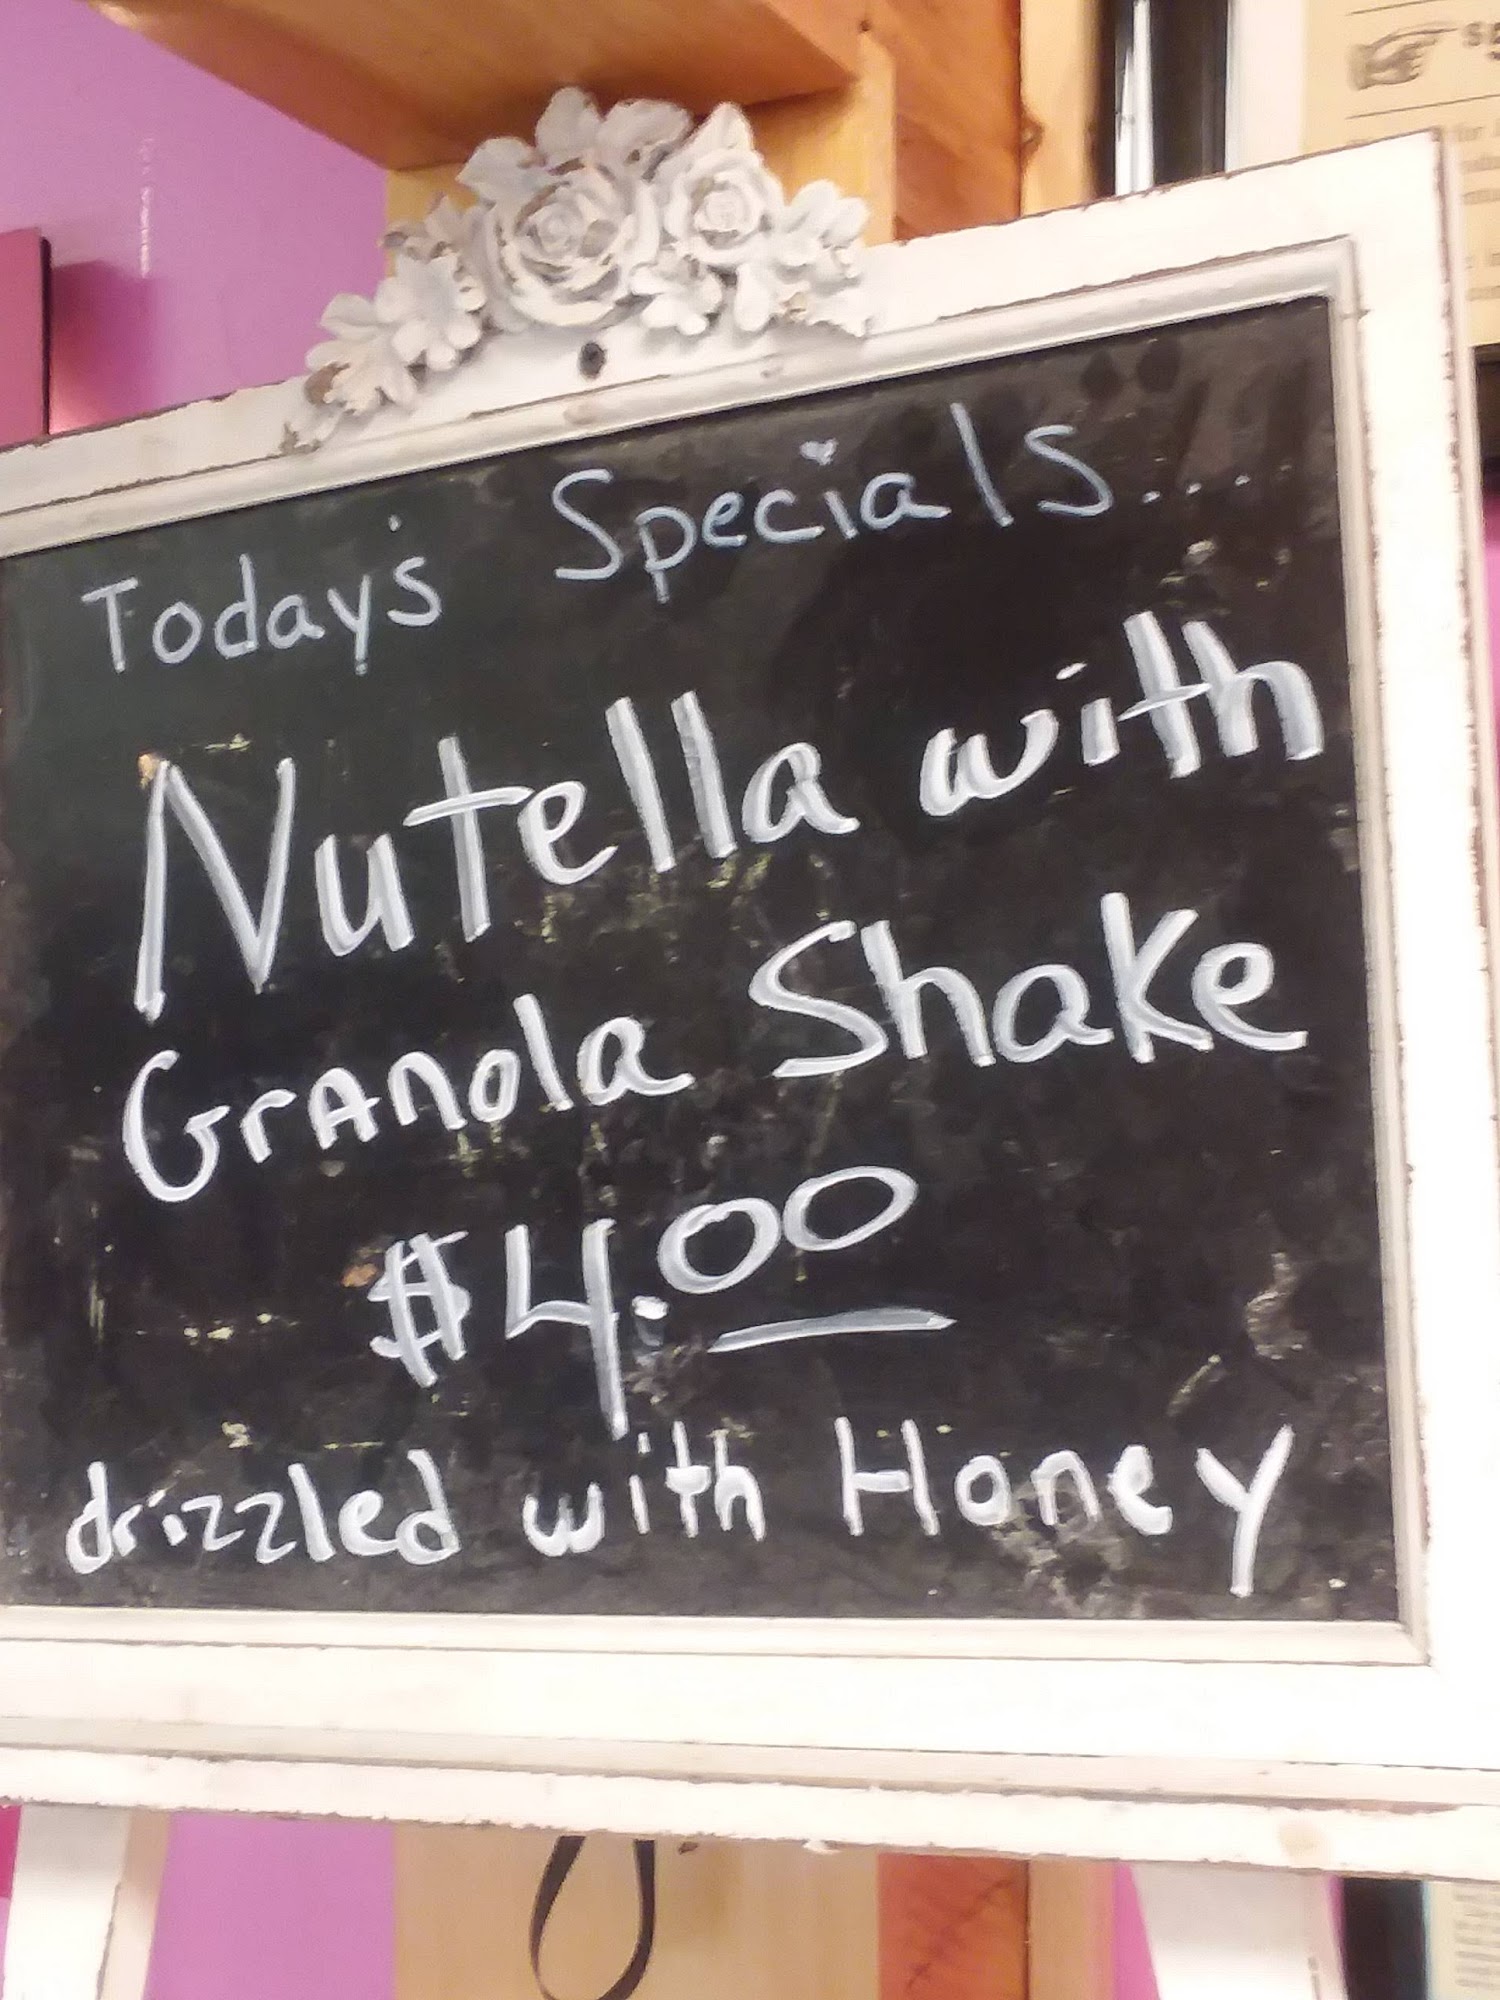 Today's Specials...
Nutella with
Granola Shake
$4.00
drizzled with Honey